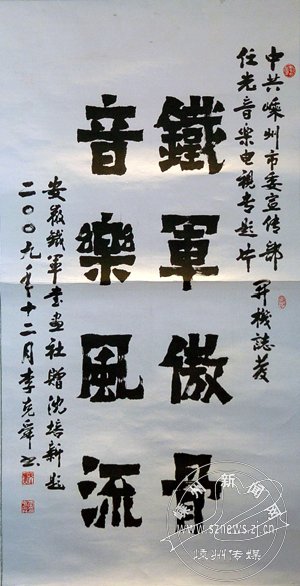 中共嵊州市委宣传部
任光音樂电视专题片 开機誌慶
鐵軍傲骨
音樂風流
安徽鐵軍书画社贈沈培新題
二〇〇九年十二月李克舜书
嵊州新闻网
www.sznews.zj.cn
嵊州传媒